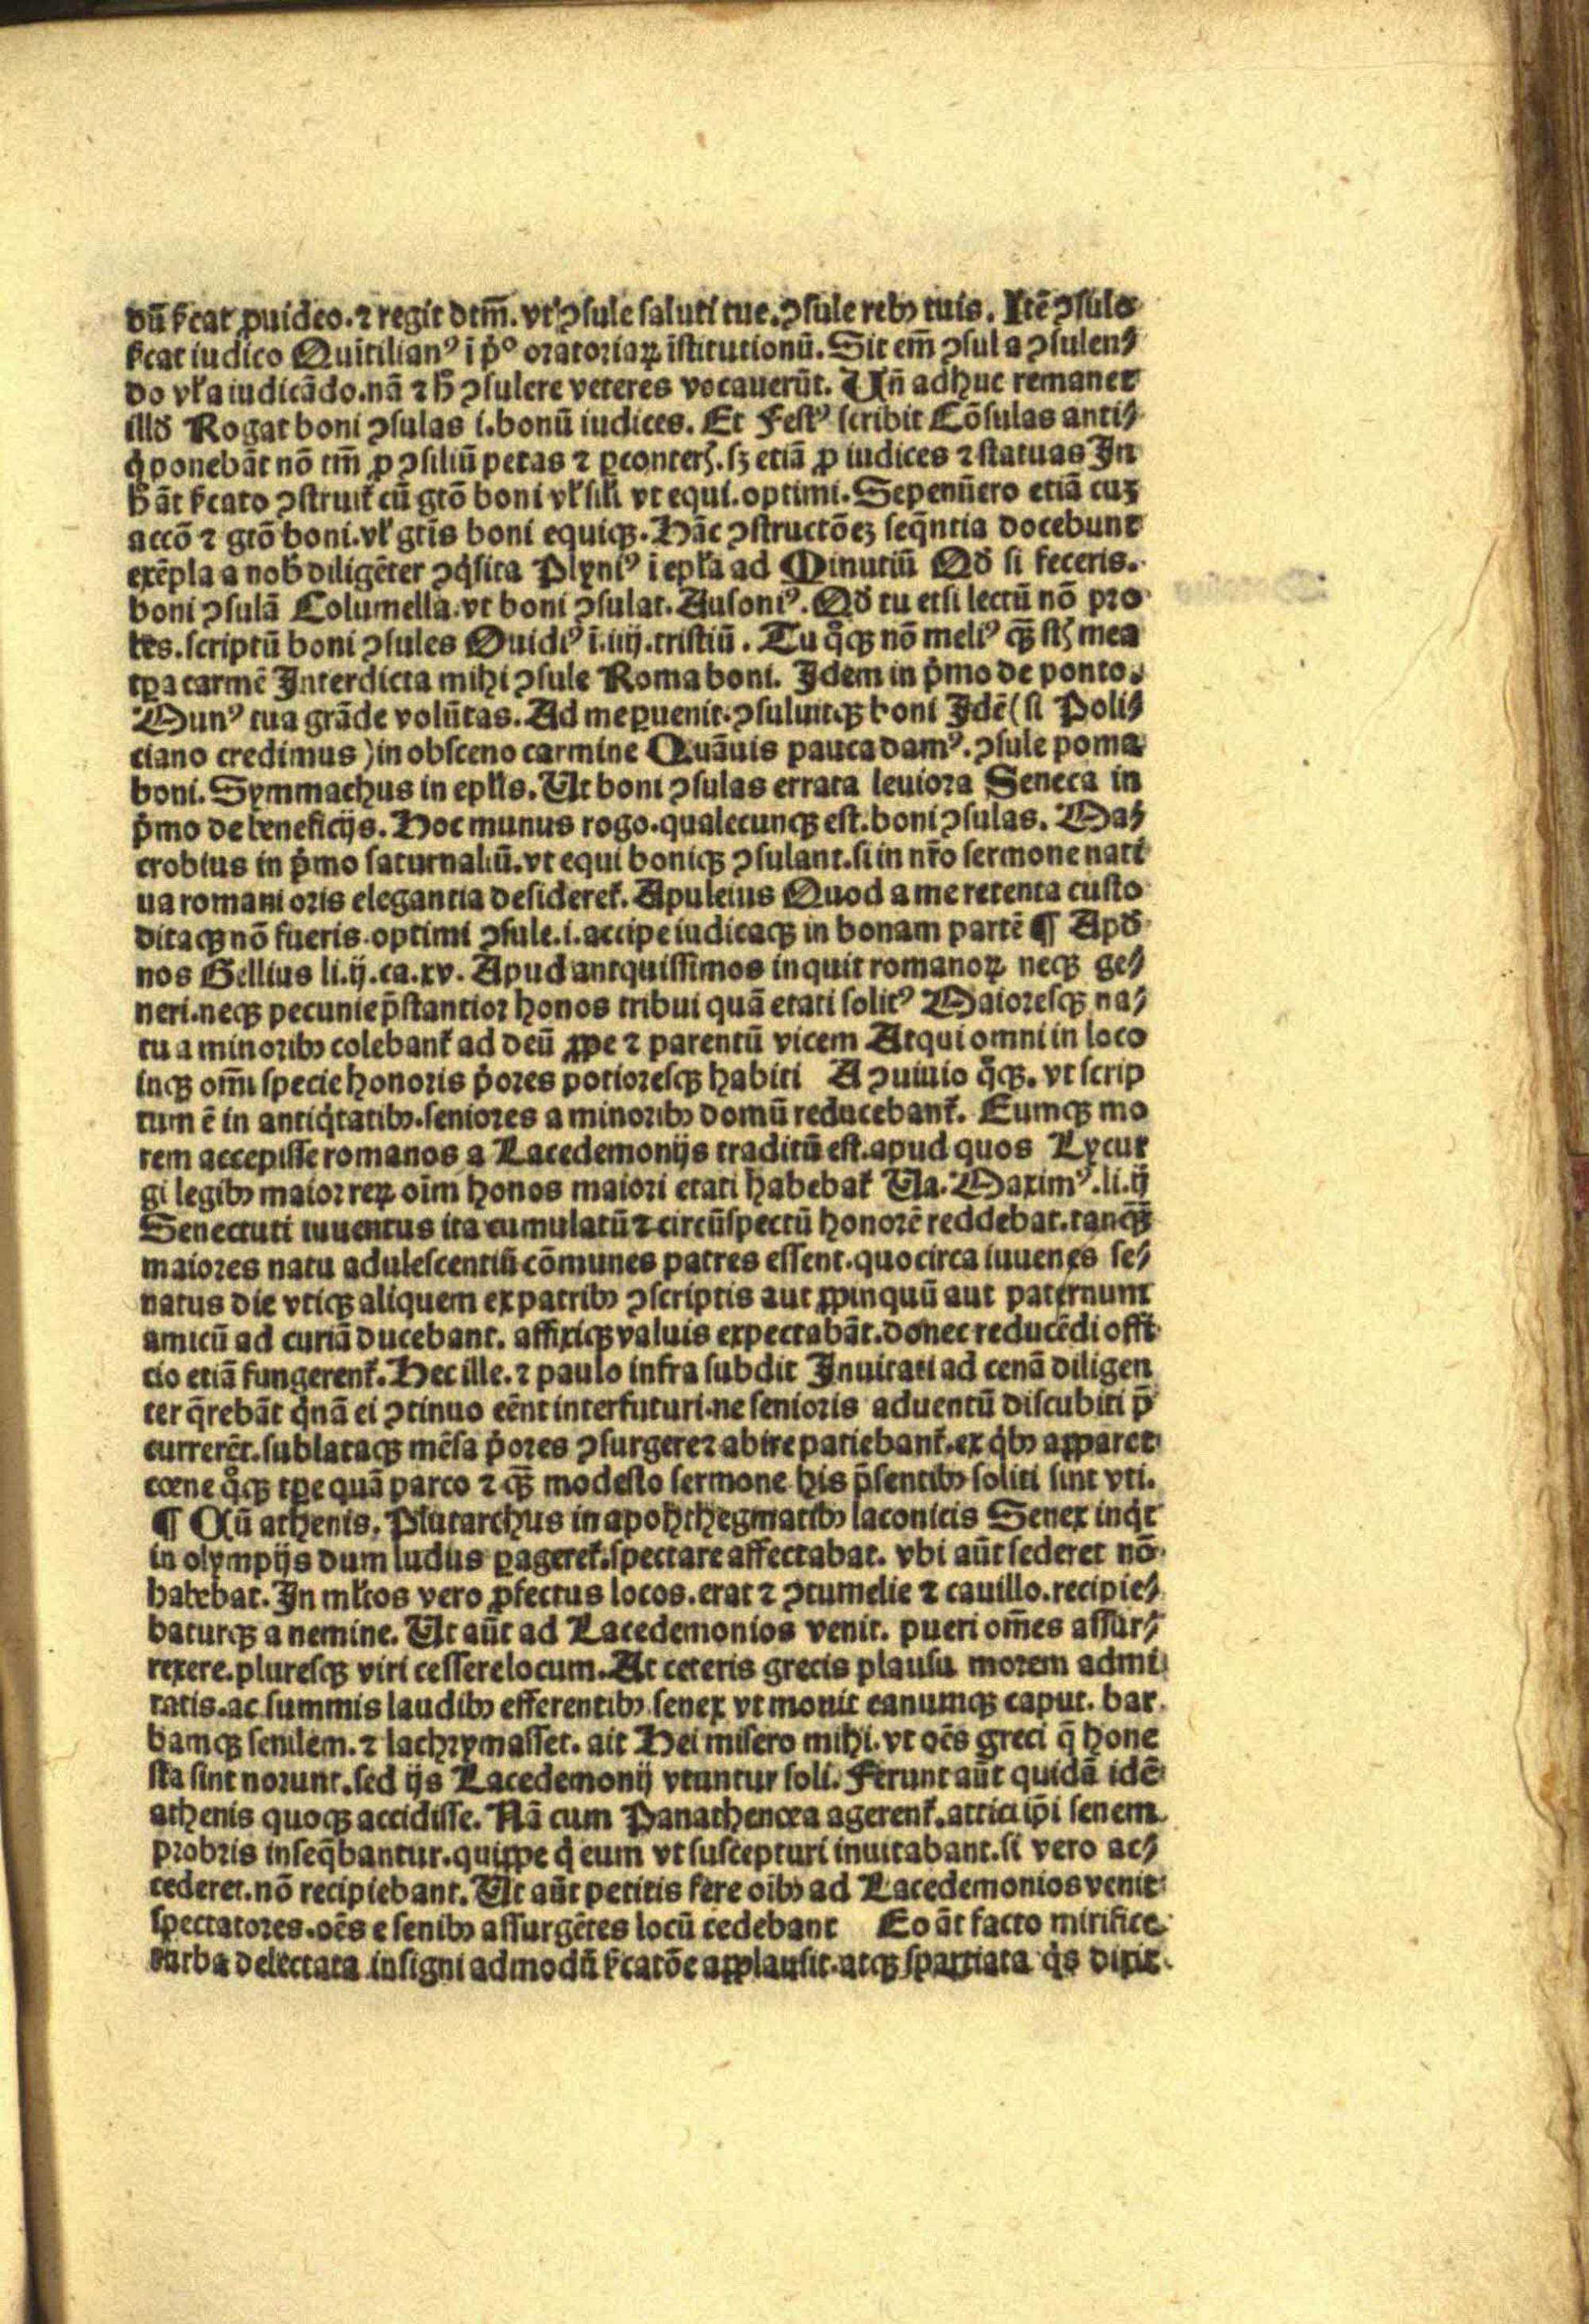 dū ſcat ꝓuideo. ⁊ regit dtm̄. vt ꝯſule ſaluti tue. ꝯſule rebꝰ tuis. Itē ꝯſulo
ſcat iudico Quītilianꝰ ī p̊º oratoriaꝝ īſtitutionū. Sit em̄ ꝯſul a ꝯſulen⸗
do vl̓ a iudicādo. nā ⁊ h̄ ꝯſulere veteres vocauerūt. Vn̄ adhuc remanet
illd̓ Rogat boni ꝯſulas i. bonū iudices. Et Feſtꝰ ſcribit Cōſulas anti⸗
q̇ ponebāt nō tm̄ ꝓ ꝯſiliū petas ⁊ ꝑconteris. ſꝫ etiā ꝓ iudices ⁊ ſtatuas In
h̄ āt ſcato ꝯſtruit̉ cū gtō boni vl̓ ſil̓i vt equi. optimi. Sepenūero etiā cuꝫ
accō ⁊ gtō boni. vl̓ gtīs boni equiqꝫ. Hāc ꝯſtructōeꝫ ſeq̄ntia docebunt
exēpla a nob̓ diligēter ꝯq̇ſita Plyniꝰ ī epl̓a ad Minutiū Qd̓ ſi feceris.
boni ꝯſulā Columella. vt boni ꝯſulat. Auſoniꝰ. Qd̓ tu etſi lectū nō pro
bes. ſcriptū boni ꝯſules Ouidiꝰ ī. iiij. triſtiū. Tu q̊qꝫ nō meliꝰ qꝫ̄ ſūt mea
tꝑa carmē Interdicta mihi ꝯſule Roma boni. Idem in p̊mo de ponto.
Munꝰ tua grāde volūtas. Ad me ꝑuenit. ꝯſuluitqꝫ boni Idē (ſi Poli⸗
ciano credimus) in obſceno carmine Quāuis pauca damꝰ. ꝯſule poma
boni. Symmachus in epl̓is. Ut boni ꝯſulas errata leuiora Seneca in
p̊mo de beneficijs. Hoc munus rogo. qualecunqꝫ eſt. boni ꝯſulas. Ma⸗
crobius in p̊mo ſaturnaliū. vt equi boniqꝫ ꝯſulant. ſi in nr̄o ſermone nati
ua romani oris elegantia deſideret̉. Apuleius Quod a me retenta cuſto
ditaqꝫ nō fueris. optimi ꝯſule. i. accipe iudicaqꝫ in bonam partē ¶ Apd̓
nos Gellius li. ij. ca. xv. Apud antquiſſimos inquit romanoꝝ neqꝫ ge⸗
neri. neqꝫ pecunie p̄ſtantior honos tribui quā etati ſolitꝰ Maioreſqꝫ na⸗
tu a minoribꝰ colebant̉ ad deū ꝓpe ⁊ parentū vicem Atqui omni in loco
inqꝫ om̄i ſpecie honoris p̊ores potioreſqꝫ habiti A ꝯuiuio q̊qꝫ. vt ſcrip
tum ē in antiq̇tatibꝰ. ſeniores a minoribꝰ domū reducebant̉. Eumqꝫ mo
rem accepiſſe romanos a Lacedemonijs traditū eſt. apud quos Lycur
gi legibꝰ maior reꝝ oīm honos maiori etati habebat̉ Va. Maximꝰ. li. ij
Senectuti iuuentus ita cumulatū ⁊ circūſpectū honorē reddebat. tanqꝫ̄
maiores natu aduleſcentiū cōmunes patres eſſent. quocirca iuuenes ſe⸗
natus die vtiqꝫ aliquem ex patribꝰ ꝯſcriptis aut ꝓpinquū aut paternum
amicū ad curiā ducebant. affixiqꝫ valuis expectabāt. donec reducēdi offi
cio etiā fungerent̉. Hec ille. ⁊ paulo infra ſubdit Inuitati ad cenā diligen
ter q̄rebāt q̇nā ei ꝯtinuo eēnt interfuturi. ne ſenioris aduentū diſcubiti p̄
currerēt. ſublataqꝫ mēſa p̊ores ꝯſurgere ⁊ abire patiebant̉. ex q̇bꝰ apparet
cœne q̊qꝫ tꝑe quā parco ⁊ qꝫ̄ modeſto ſermone his p̄ſentibꝰ ſoliti ſint vti.
¶ Qū athenis. Plutarchus in apohthegmatibꝰ laconicis Senex inq̇t
in olympijs dum ludus ꝑageret̉. ſpectare affectabat. vbi aūt ſederet nō
habebat. In ml̓tos vero ꝓfectus locos. erat ⁊ ꝯtumelie ⁊ cauillo. recipie⸗
baturqꝫ a nemine. Ut aūt ad Lacedemonios venit. pueri om̄es aſſur⸗
rexere. plureſqꝫ viri ceſſere locum. At ceteris grecis plauſu morem admi
ratis. ac ſummis laudibꝰ efferentibꝰ. ſenex vt monit canumqꝫ caput. bar
bamqꝫ ſenilem. ⁊ lachrymaſſet. ait Hei miſero mihi. vt oēs greci q̄ hone
ſta ſint norunt. ſed ijs Lacedemonij vtuntur ſoli. Ferunt aūt quidā idē
athenis quoqꝫ accidiſſe. Nā cum Panathencea agerent̉. attici ip̄i ſenem
probris inſeq̄bantur. quippe q̇ eum vt ſuſcepturi inuitabant. ſi vero ac⸗
cederet. nō recipiebant. Ut aūt petitis fere oībꝰ ad Lacedemonios venit
ſpectatores. oēs e ſenibꝰ aſſurgētes locū cedebant Eo āt facto mirifice
turba delectata inſigni admodū ſcatōe applauſit. atqꝫ ſpartiata q̇s dixit.